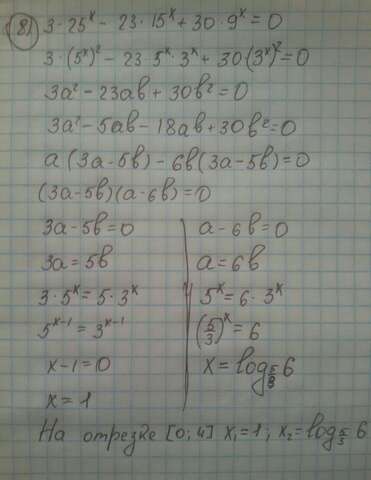 (8) 3·25ˣ - 23·15ˣ + 30·9ˣ = 0
3·(5ˣ)² - 23·5ˣ·3ˣ + 30(3ˣ)² = 0
3a² - 23aв + 30в² = 0
3a² - 5aв - 18aв + 30в² = 0
a(3a-5в) - 6в(3a-5в) = 0
(3a-5в)(a-6в) = 0
3a-5в=0
3a=5в
3·5ˣ=5·3ˣ
5ˣ⁻¹=3ˣ⁻¹
x-1=0
x=1
a-6в=0
a=6в
5ˣ=6·3ˣ
(5/3)ˣ=6
x=log_{5/3} 6
На отрезке [0;4] x₁=1; x₂=log_{5/3} 6